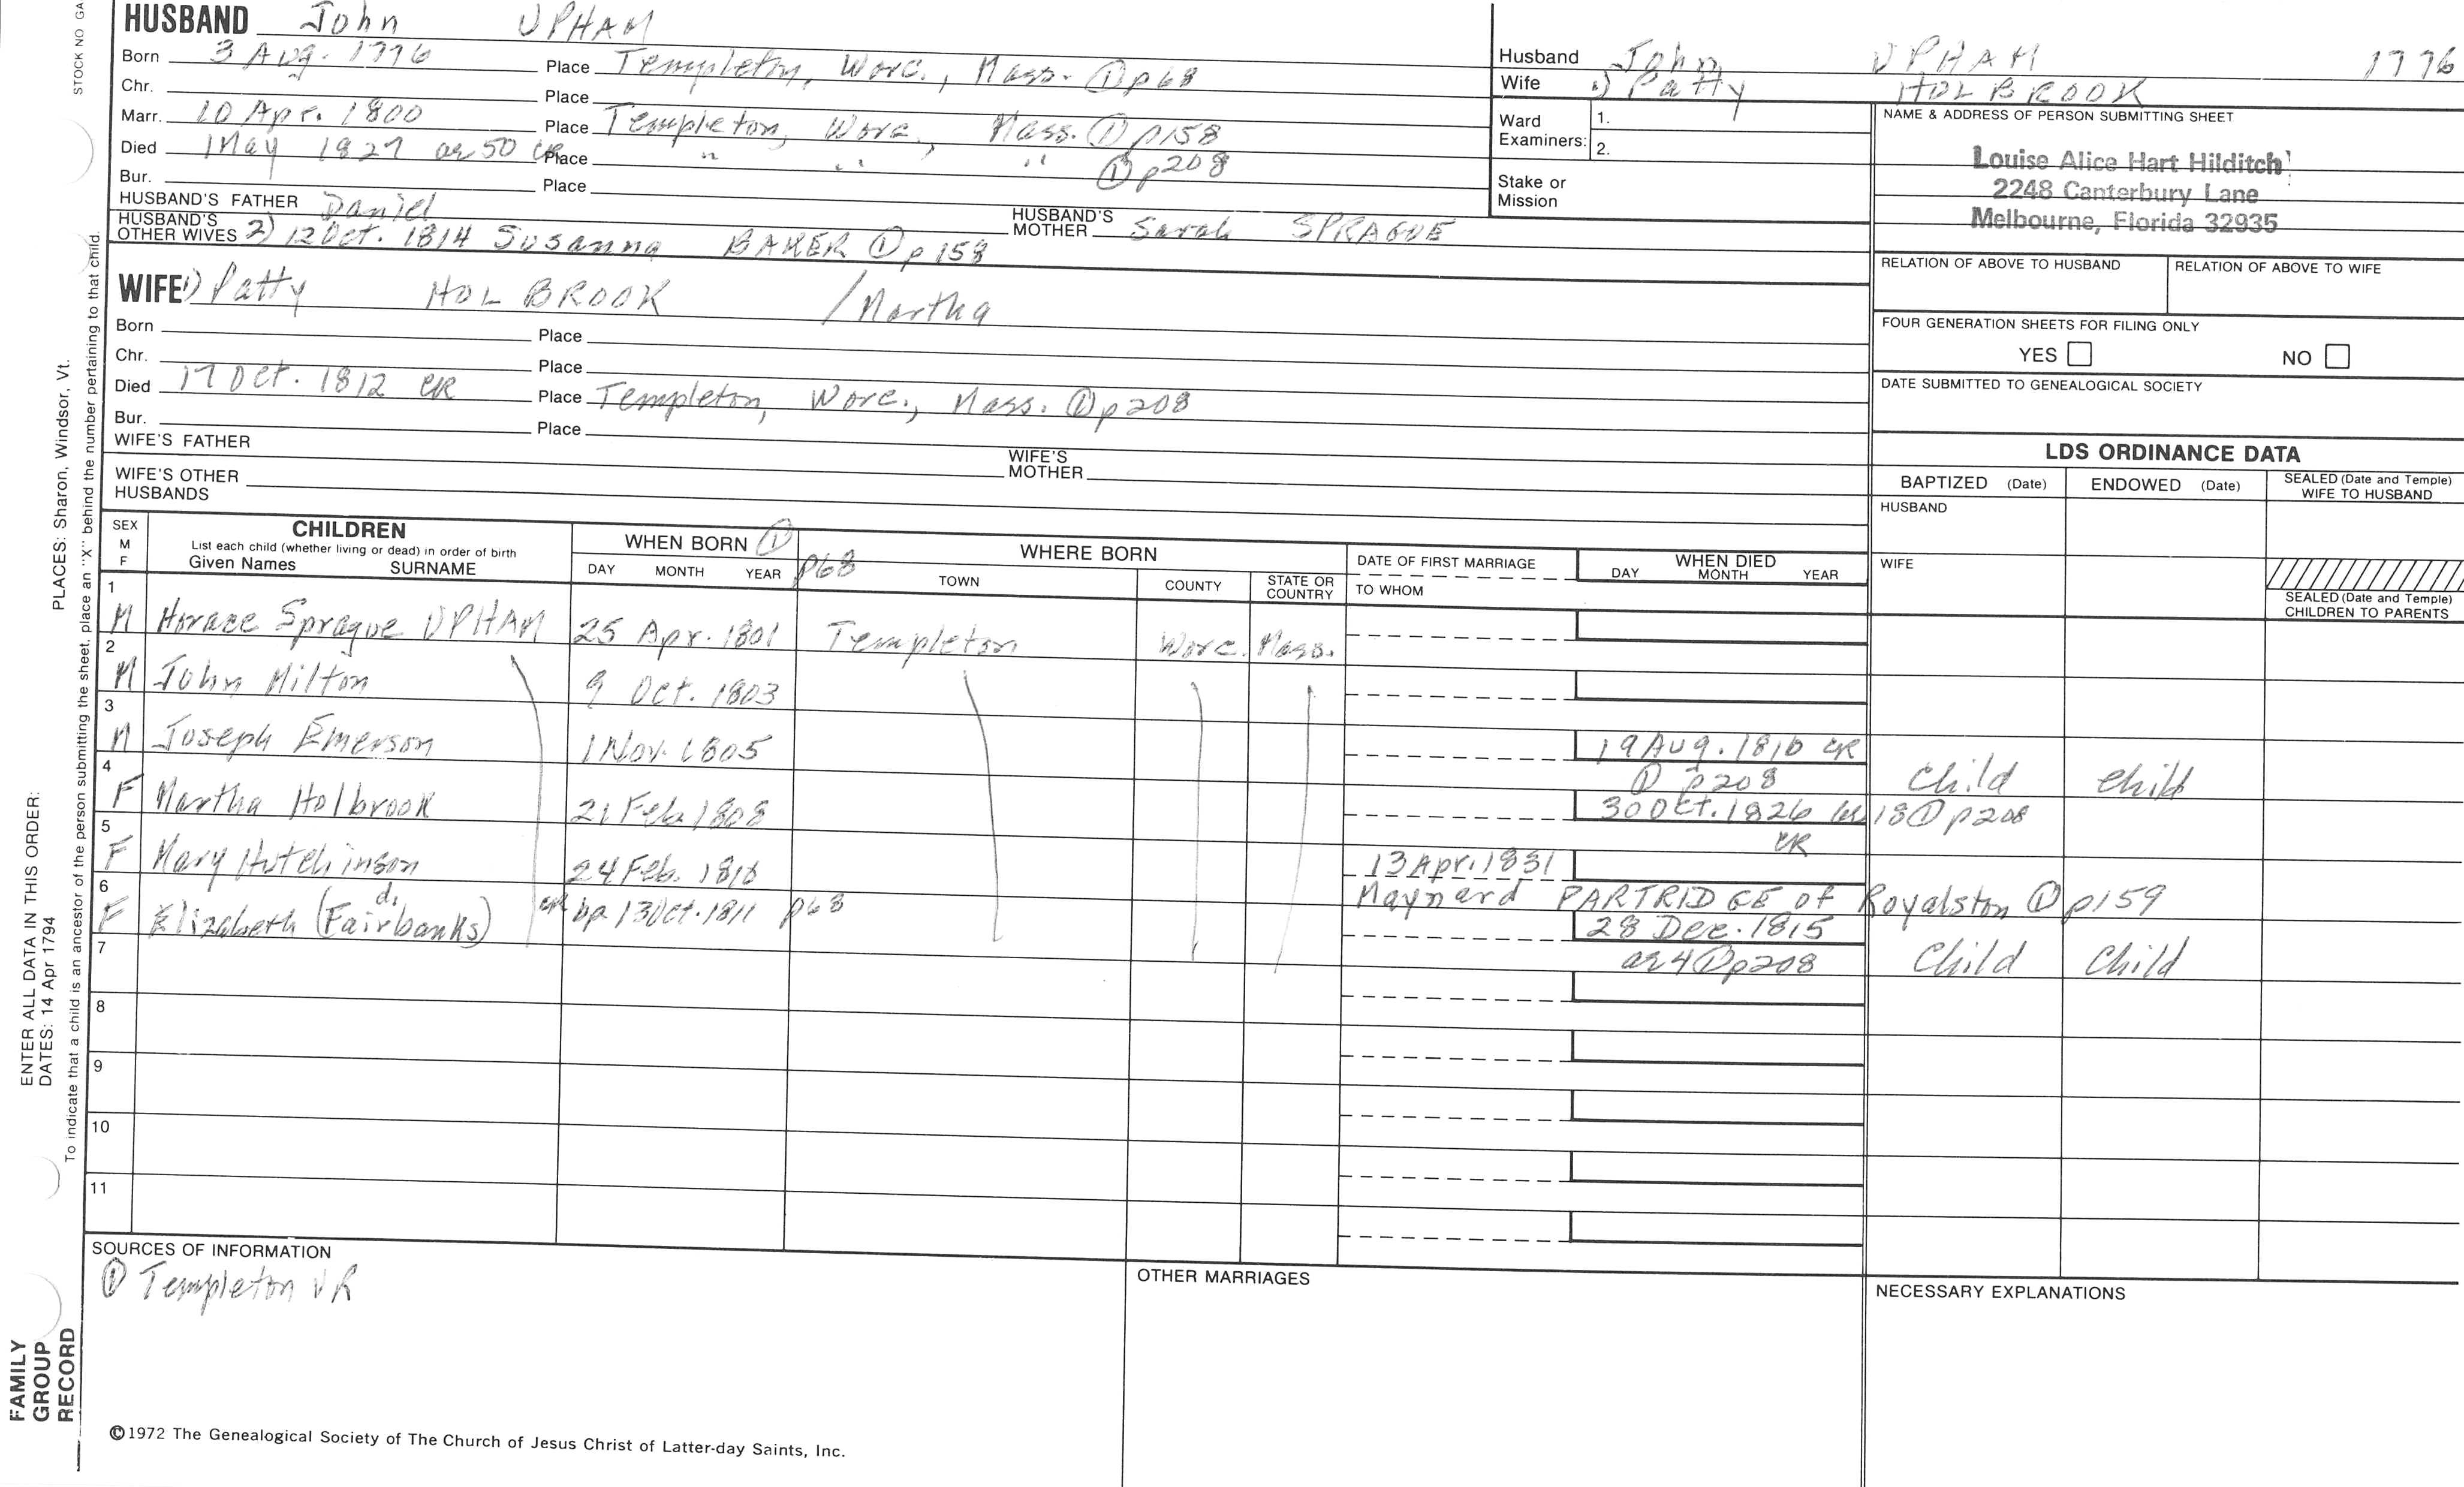 STOCK NO GA
HUSBAND John UPHAM
Born 3 Aug. 1776 Place Templeton, Worc., Mass. ① p68
Chr. Place
Marr. 10 Apr. 1800 Place Templeton, Worc., Mass. ① p158
Died 1 May 1827 ae 50 CR Place " " " ① p208
Bur. Place
HUSBAND'S FATHER Daniel HUSBAND'S MOTHER Sarah SPRAGUE
HUSBAND'S OTHER WIVES 2) 12 Oct. 1814 Susanna BAKER ① p158
WIFE 1) Patty HOLBROOK / Martha
Born Place
Chr. Place
Died 17 Oct. 1812 CR Place Templeton, Worc., Mass. ① p208
Bur. Place
WIFE'S FATHER WIFE'S MOTHER
WIFE'S OTHER HUSBANDS
Husband John UPHAM 1776
Wife 1) Patty HOLBROOK
Ward Examiners: 1.
2.
Stake or Mission
NAME & ADDRESS OF PERSON SUBMITTING SHEET
Louise Alice Hart Hilditch
2248 Canterbury Lane
Melbourne, Florida 32935
RELATION OF ABOVE TO HUSBAND RELATION OF ABOVE TO WIFE
FOUR GENERATION SHEETS FOR FILING ONLY
YES NO
DATE SUBMITTED TO GENEALOGICAL SOCIETY
LDS ORDINANCE DATA
BAPTIZED (Date) ENDOWED (Date) SEALED (Date and Temple) WIFE TO HUSBAND
HUSBAND
WIFE
SEALED (Date and Temple) CHILDREN TO PARENTS
SEX M F
CHILDREN
List each child (whether living or dead) in order of birth
Given Names SURNAME
WHEN BORN ① p68
DAY MONTH YEAR
WHERE BORN
TOWN COUNTY STATE OR COUNTRY
DATE OF FIRST MARRIAGE
TO WHOM
WHEN DIED
DAY MONTH YEAR
1 M Horace Sprague UPHAM 25 Apr. 1801 Templeton Worc. Mass.
2 M John Milton 9 Oct. 1803
3 M Joseph Emerson 1 Nov. 1805 19 Aug. 1810 CR
① p208 Child Child
4 F Martha Holbrook 21 Feb. 1808 30 Oct. 1826 ae 18 ① p208
CR
5 F Mary Hutchinson 24 Feb. 1810 13 Apr. 1831
Maynard PARTRIDGE of Royalston ① p159
6 F Elizabeth (Fairbanks) d. CR bp 13 Oct. 1811 p68 28 Dec. 1815
ae 4 ① p208 Child Child
7
8
9
10
11
SOURCES OF INFORMATION
① Templeton VR
OTHER MARRIAGES
NECESSARY EXPLANATIONS
©1972 The Genealogical Society of The Church of Jesus Christ of Latter-day Saints, Inc.
FAMILY
GROUP
RECORD
ENTER ALL DATA IN THIS ORDER:
DATES: 14 Apr 1794
PLACES: Sharon, Windsor, Vt.
To indicate that a child is an ancestor of the person submitting the sheet, place an "X" behind the number pertaining to that child.